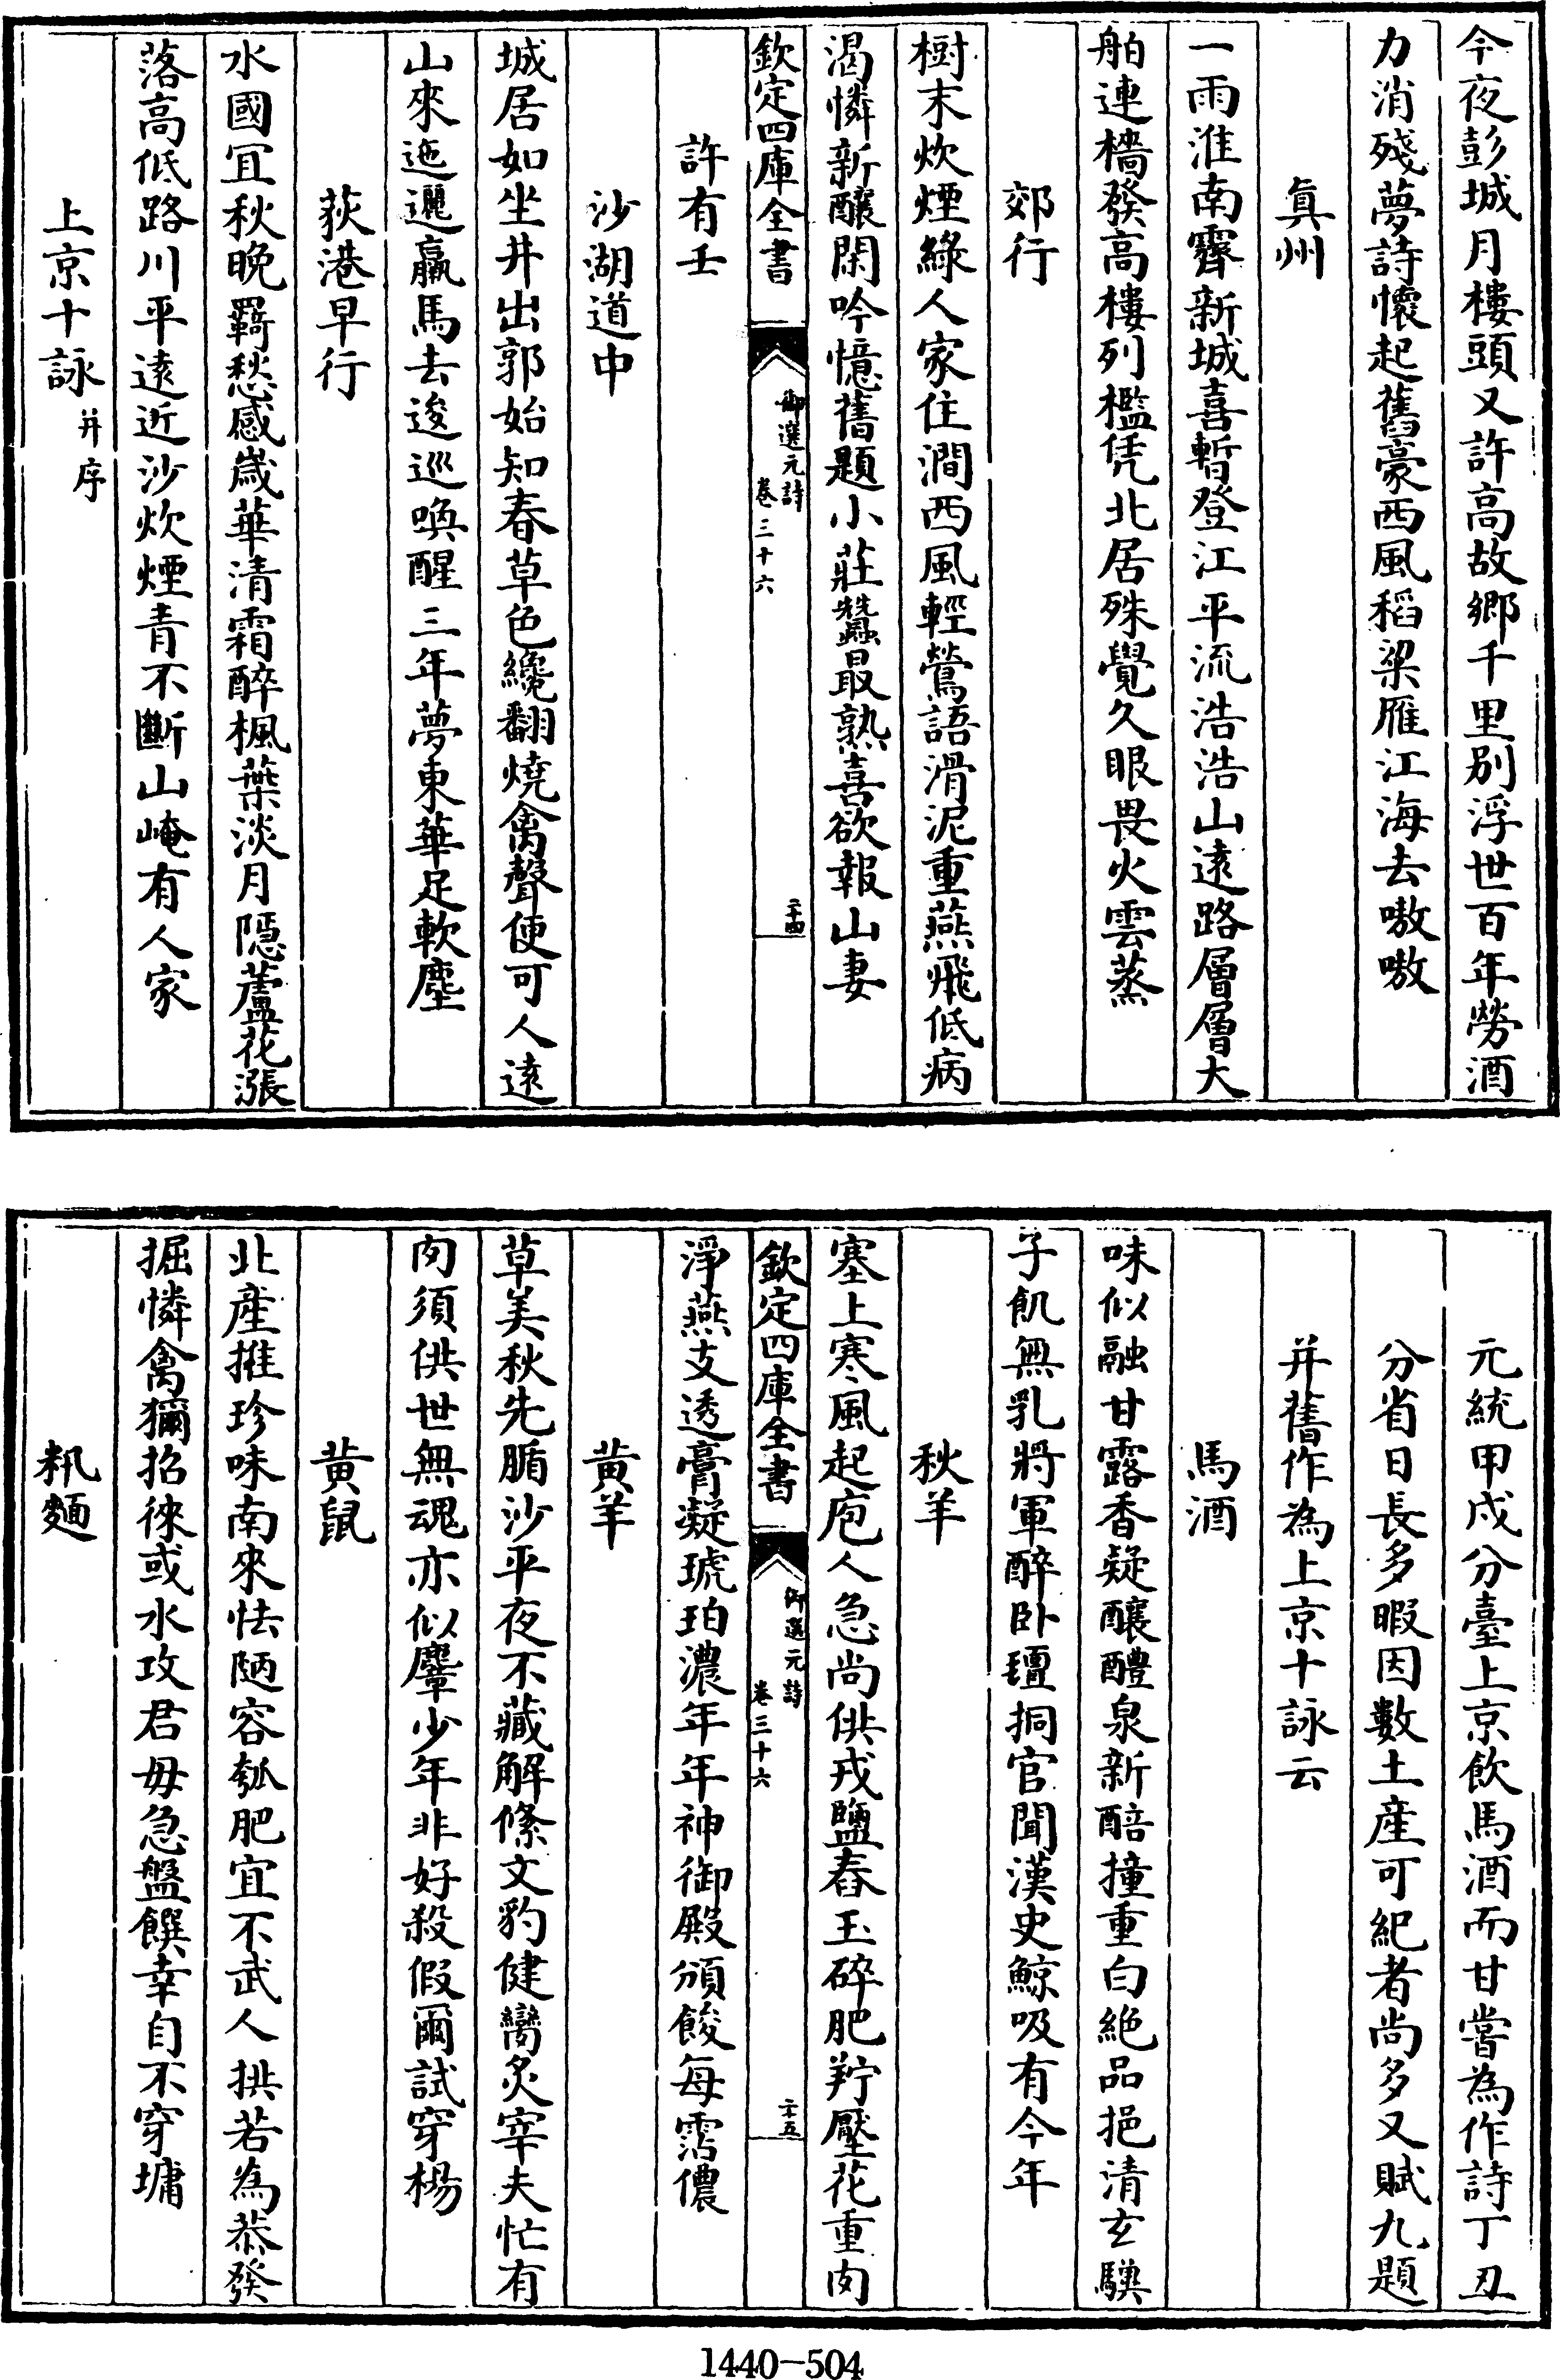 今夜彭城月樓頭又許高故鄉千里别浮世百年勞酒
力消殘夢詩懷起舊豪西風稻粱雁江海去嗷嗷
真州
一雨淮南霽新城喜暫登江平流浩浩山逺路層層大
舶連檣發高樓列檻凭北居殊覺久眼畏火雲蒸
郊行
樹末炊煙綠人家住澗西風輕鶯語滑泥重燕飛低病
渴憐新釀閑吟憶舊題小莊蠶最熟喜欲報山妻
欽定四庫全書
御選元詩
卷三十六
二十四
許有壬
沙湖道中
城居如坐井出郭始知春草色纔翻燒禽聲便可人逺
山來迤邐羸馬去逡巡喚醒三年夢東華足軟塵
荻港早行
水國宜秋晚羇愁感嵗華清霜醉楓葉淡月隠蘆花漲
落高低路川平逺近沙炊煙青不斷山崦有人家
上京十詠并序
元統甲戍分臺上京飲馬酒而甘嘗為作詩丁丑
分省日長多暇因數土産可紀者尚多又賦九題
并舊作為上京十詠云
馬酒
味似融甘露香疑釀醴泉新醅撞重白絶品挹清玄驥
子飢無乳將軍醉卧氊挏官聞漢史鯨吸有今年
秋羊
塞上寒風起庖人急尚供戎鹽舂玉碎肥羜壓花重肉
欽定四庫全書
御選元詩
卷三十六
二十五
淨燕支透膏凝琥珀濃年年神御殿頒餕每霑儂
黄羊
草美秋先腯沙平夜不藏解絛文豹健臠炙宰夫忙有
肉須供世無魂亦似麞少年非好殺假爾試穿楊
黄鼠
北産推珍味南來怯陋容瓠肥宜不武人拱若為恭發
掘憐禽獮招徠或水攻君毋急盤饌幸自不穿墉
籸麵
1440-504